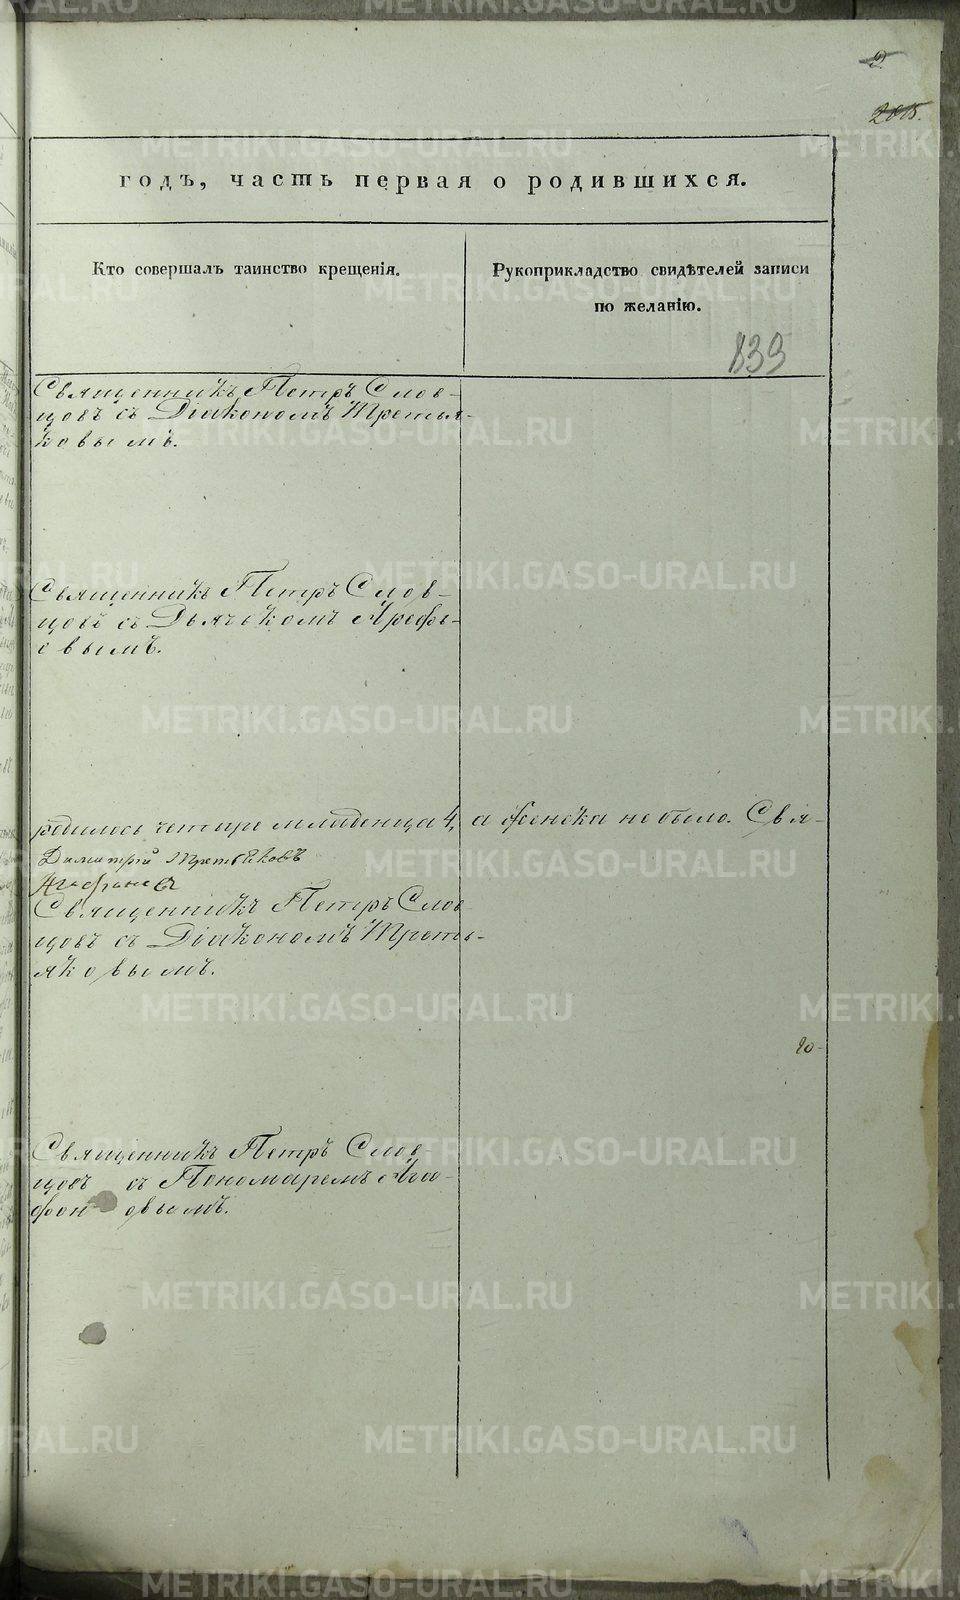 2
2015.
годъ, часть первая о родившихся.
Кто совершалъ таинство крещенія.
Рукоприкладство свидѣтелей записи
по желанію.
839
Священникъ Петръ Слов-
цовъ съ Діакономъ Третья-
ковымъ.
Священникъ Петръ Слов-
цовъ съ Дьячкомъ Арефь-
евымъ.
родилось четыре младенца 4, а женска не было. Свя-
Димитрій Третьяковъ
Агафоновъ
Священникъ Петръ Слов-
цовъ съ Діакономъ Треть-
яковымъ.
20-
Священникъ Петръ Слов-
цовъ съ Пономаремъ Ага-
фон овымъ.
METRIKI.GASO-URAL.RU